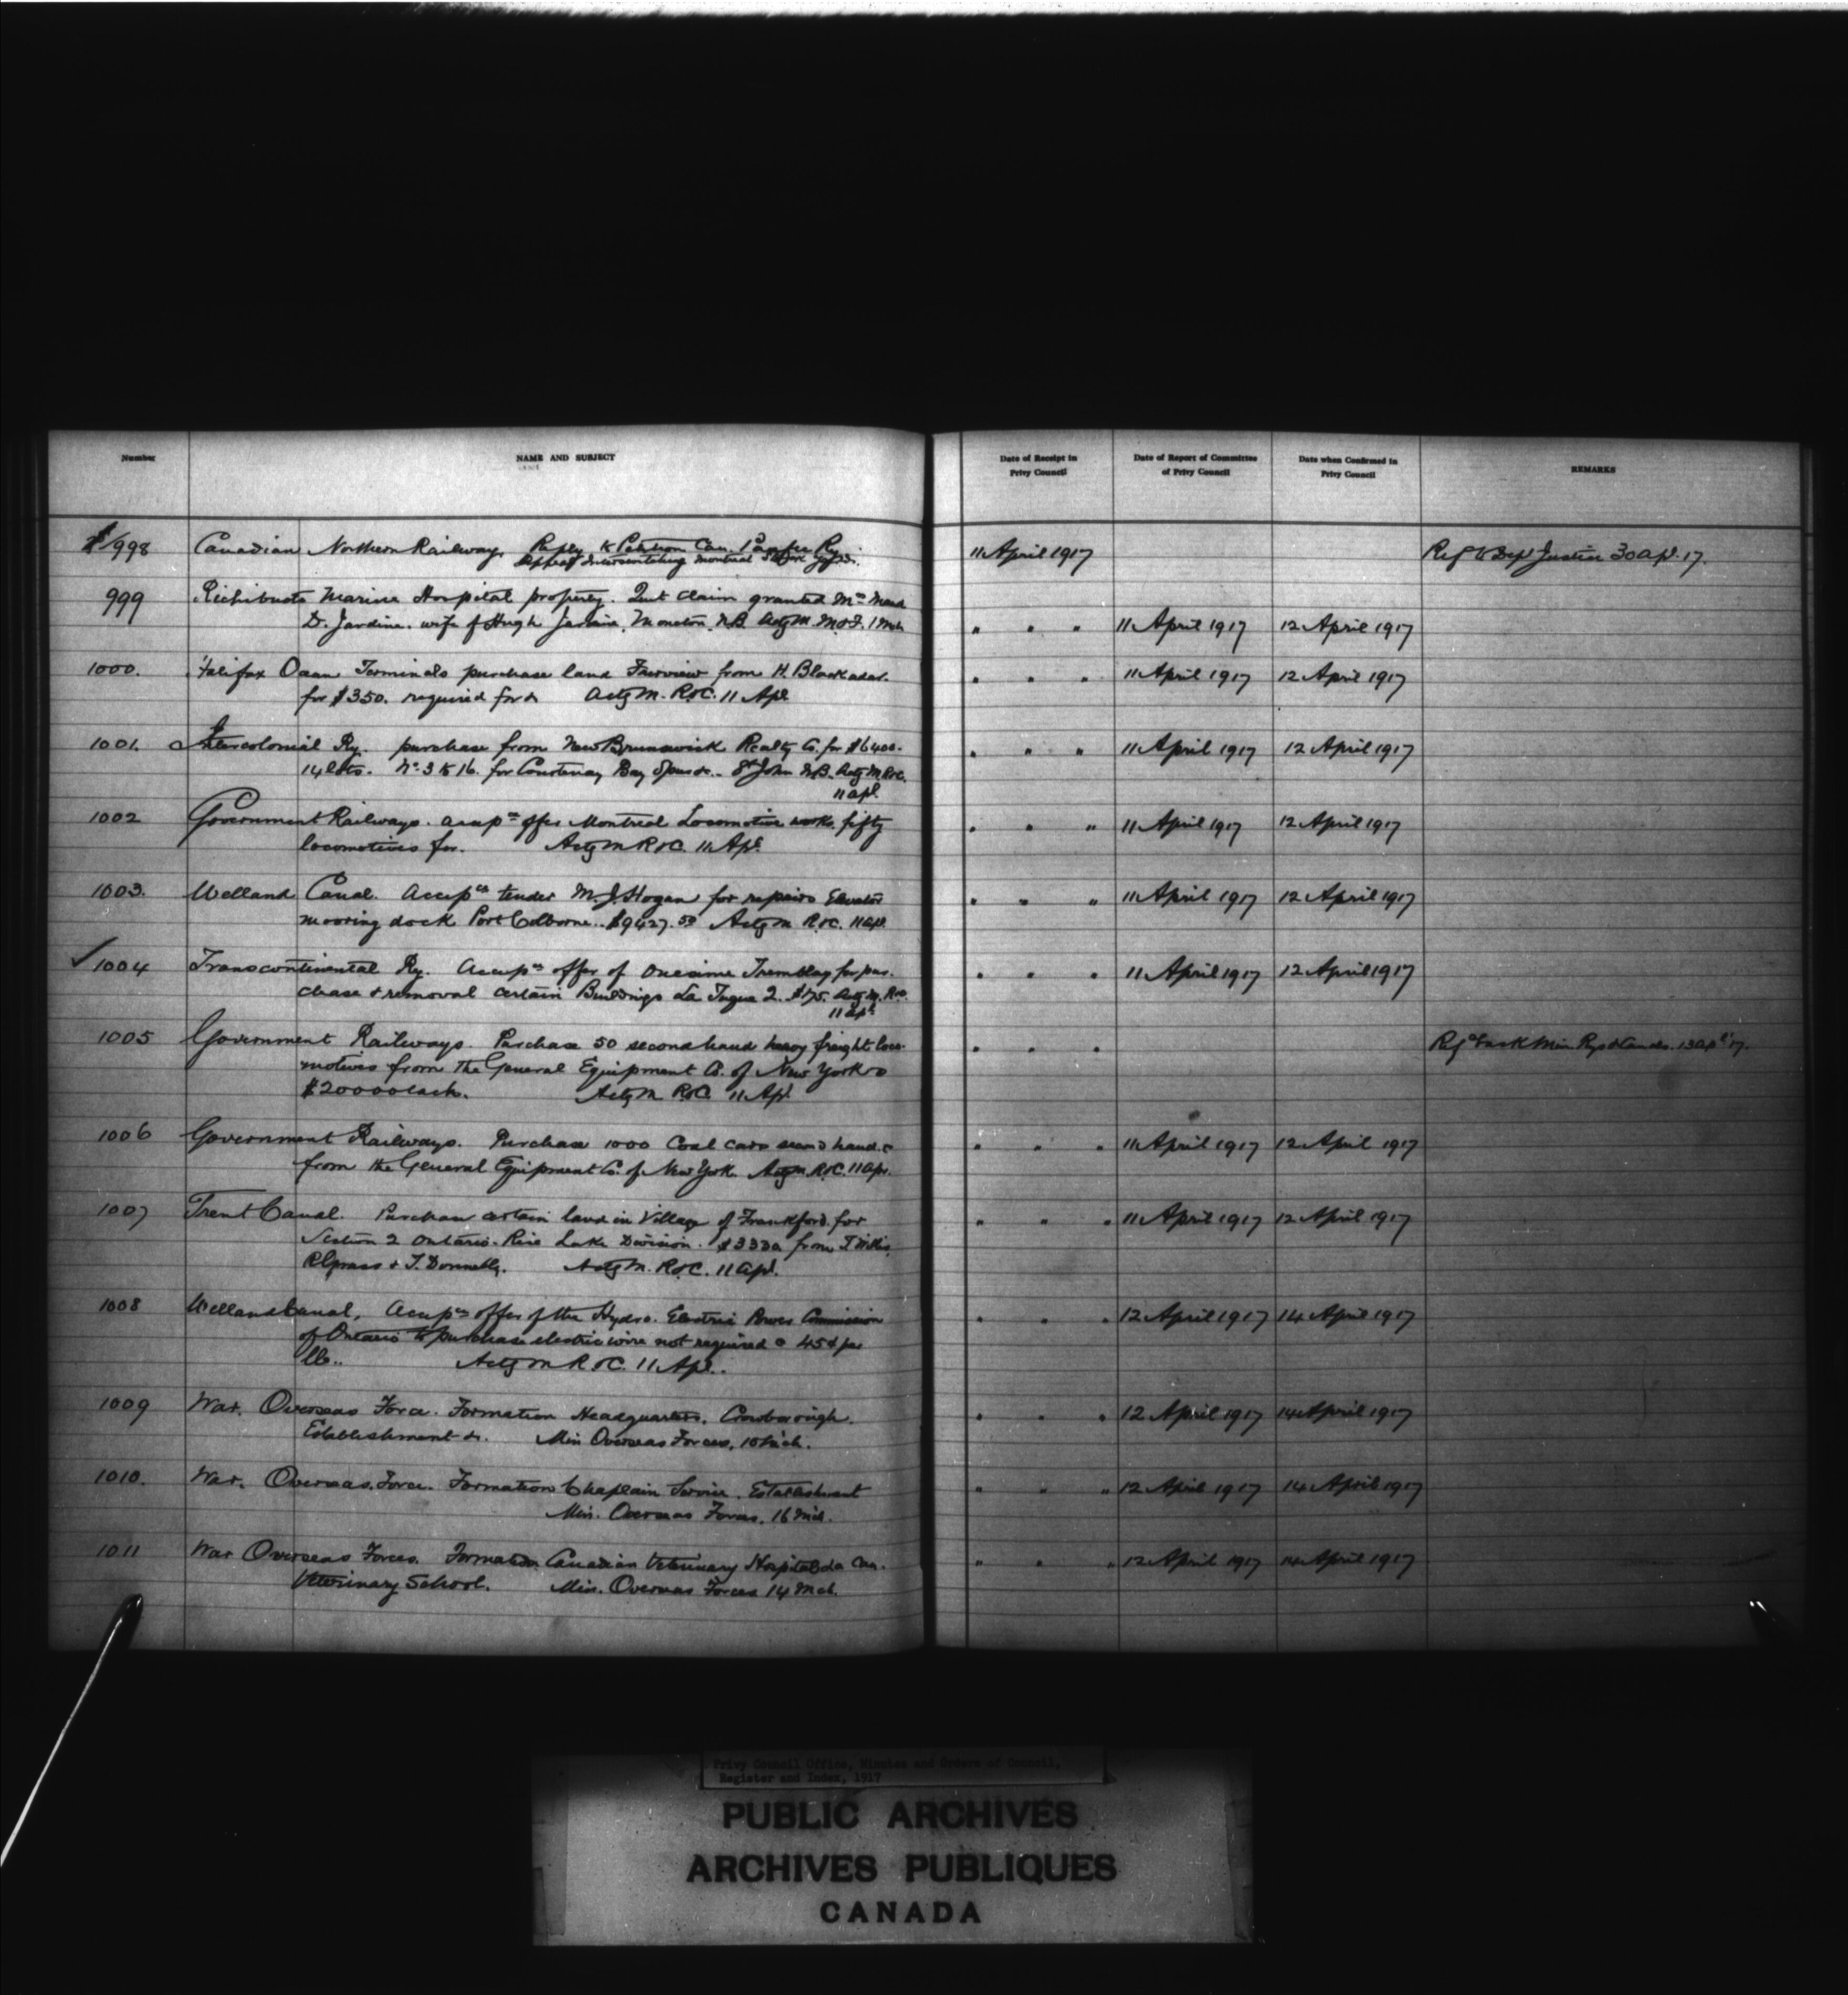 Number
NAME AND SUBJECT
Date of Receipt in
Privy Council
Date of Report of Committee
of Privy Council
Date when Confirmed in
Privy Council
REMARKS
998 Canadian Northern Railway. Reply to Petition Can. Pacific Ry. 11 April 1917 Ref to Dept Justice 30 Apl. 17.
Montreal
999 Richibucto Marine Hospital property. Quit claim granted Mrs Maud
D. Jardine. wife of Hugh Jardine, Moncton, N.B. Actg M. M&F. 1 Mch " " " 11 April 1917 12 April 1917
1000. Halifax Ocean Terminals purchase land Fairview from H. Blackadar. " " " 11 April 1917 12 April 1917
for $350. required for &c Actg M. R&C. 11 Apl
1001. Intercolonial Ry. purchase from New Brunswick Realty Co. for $6400. " " " 11 April 1917 12 April 1917
14 lots. No 3 to 16. for Courtenay Bay Spur &c.. St John N.B. Actg M. R&C.
11 apl.
1002 Government Railways. accepce offer Montreal Locomotive works. fifty " " " 11 April 1917 12 April 1917
locomotives for. Actg M R&C. 11 Apl.
1003. Welland Canal. Accepce tender M. J. Hogan for repairs Elevator " " " 11 April 1917 12 April 1917
mooring dock Port Colborne.. $9427.50 Actg M R&C. 11 apl.
1004 Transcontinental Ry. Accepce offer of Onesime Tremblay for pur- " " " 11 April 1917 12 April 1917
chase & removal certain Buildings La Tuque 2. $175. Actg M. R&C.
11 apl
1005 Government Railways. Purchase 50 second hand heavy freight loco- " " " Refd back Min. Rys & Canals. 13 apl 17.
motives from the General Equipment Co. of New York @
$20000 each. Actg M R&C 11 Apl
1006 Government Railways. Purchase 1000 Coal cars second hand &c " " " 11 April 1917 12 April 1917
from the General Equipment Co. of New York. Actg M. R&C. 11 Apr.
1007 Trent Canal. Purchase certain land in Village of Frankford for " " " 11 April 1917 12 April 1917
Section 2 Ontario-Rice Lake Division. from
& T. Donnelly. Actg M. R&C. 11 Apl.
1008 Welland Canal, Accepce offer of the Hydro. Electric Power Commission " " " 12 April 1917 14 April 1917
of Ontario to purchase electric wire not required @ 45¢ per
lb.. Actg M R&C. 11 Apl..
1009 War. Overseas Force. Formation Headquarters, Crowborough. " " " 12 April 1917 14 April 1917
Establishment &c. Min Overseas Forces, 10 Mch.
1010. War. Overseas Force. Formation Chaplain Service. Establishment " " " 12 April 1917 14 April 1917
Min. Overseas Forces. 16 Mch.
1011 War Overseas Forces. Formation Canadian Veterinary Hospital &c Can. " " " 12 April 1917 14 April 1917
Veterinary School. Min. Overseas Forces 14 Mch.
Privy Council Office, Minutes and Orders of Council,
Register and Index, 1917
PUBLIC ARCHIVES
ARCHIVES PUBLIQUES
CANADA